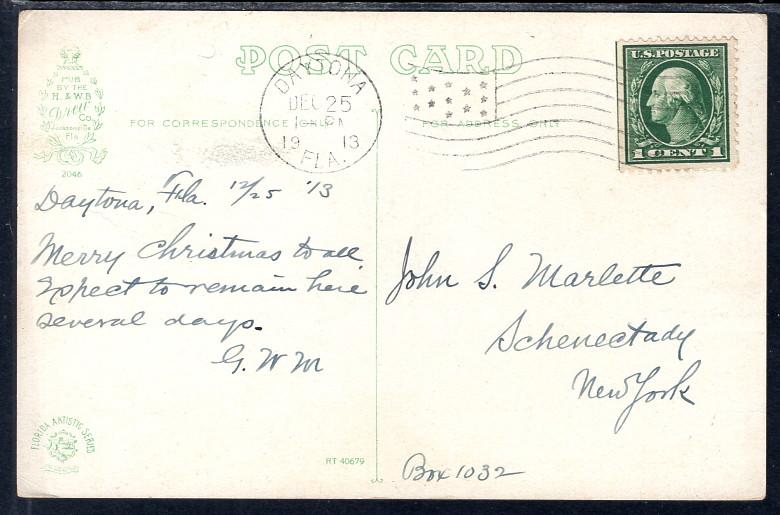 POST CARD
PUB
BY THE
H. & W.B.
Drew
Co.
Jacksonville
Fla.
2046
FOR CORRESPONDENCE ONLY
FOR ADDRESS ONLY
DAYTONA
DEC 25
19 13
FLA.
U.S. POSTAGE
1 CENT 1
Daytona, Fla. 12/25 '13
Merry Christmas to all
Expect to remain here
several days.
G. W M
John S. Marlette
Schenectady
New York
Box 1032
FLORIDA ARTISTIC SERIES
RT 40679